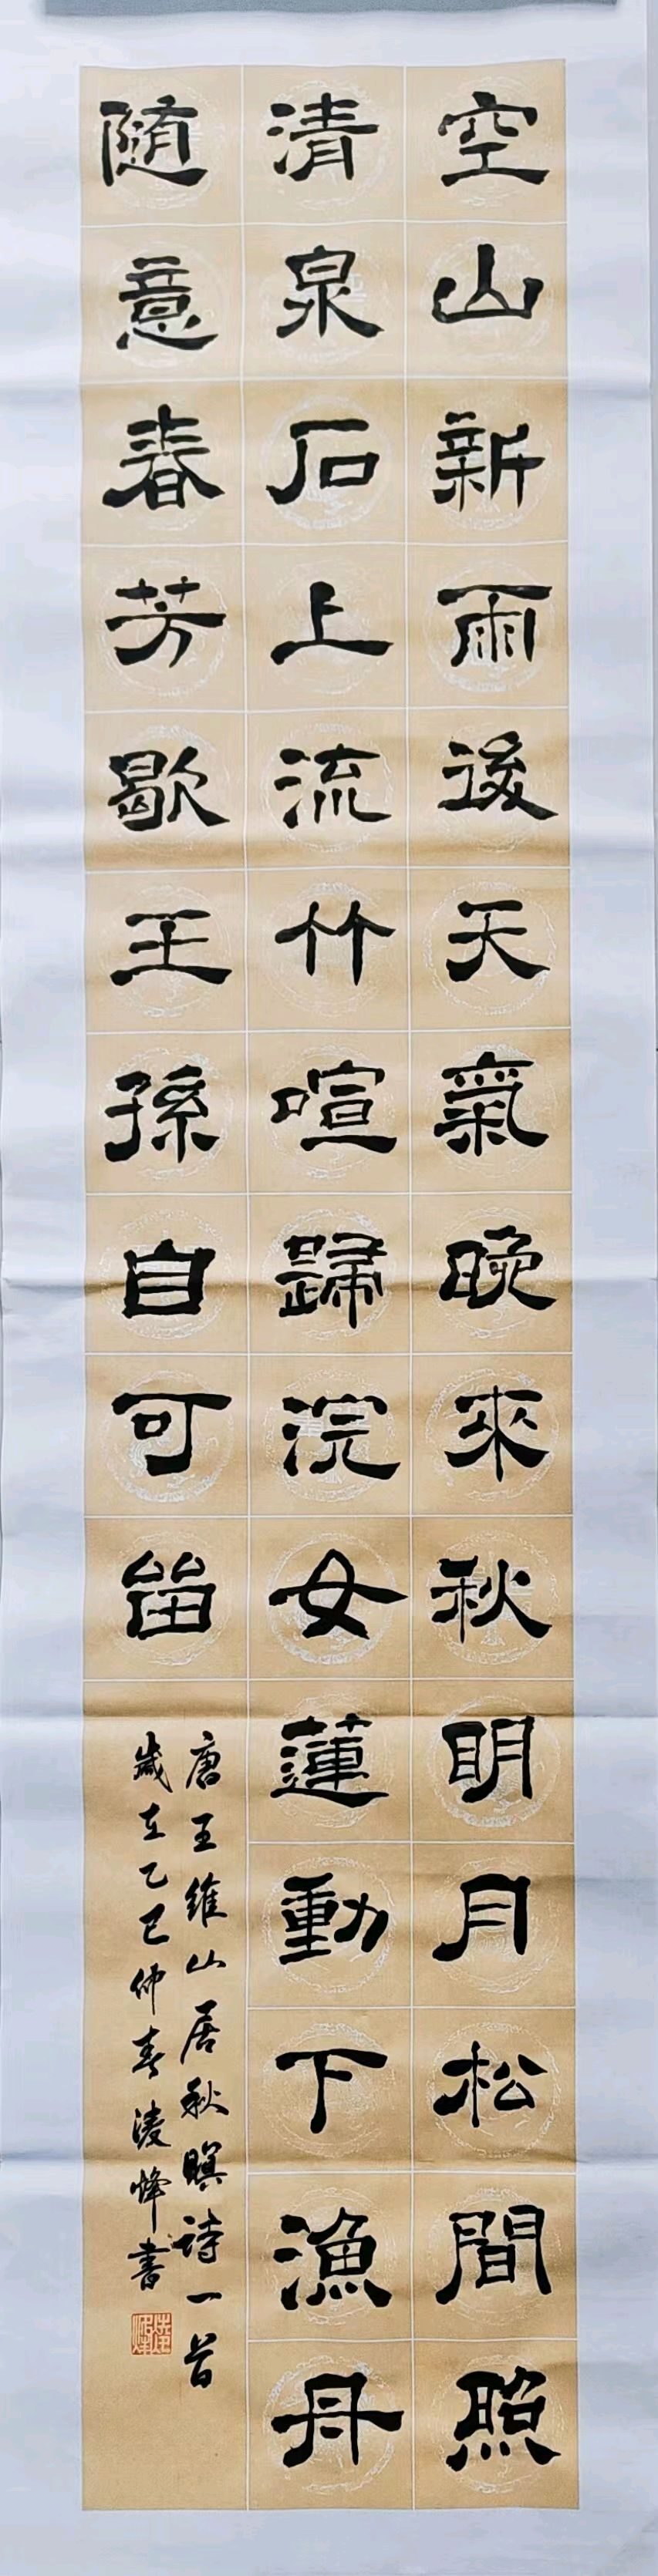 空山新雨後天氣晚來秋明月松間照
清泉石上流竹喧歸浣女蓮動下漁舟
隨意春芳歇王孫自可畱
唐王維山居秋暝詩一首
歲在乙巳仲春淩烽書